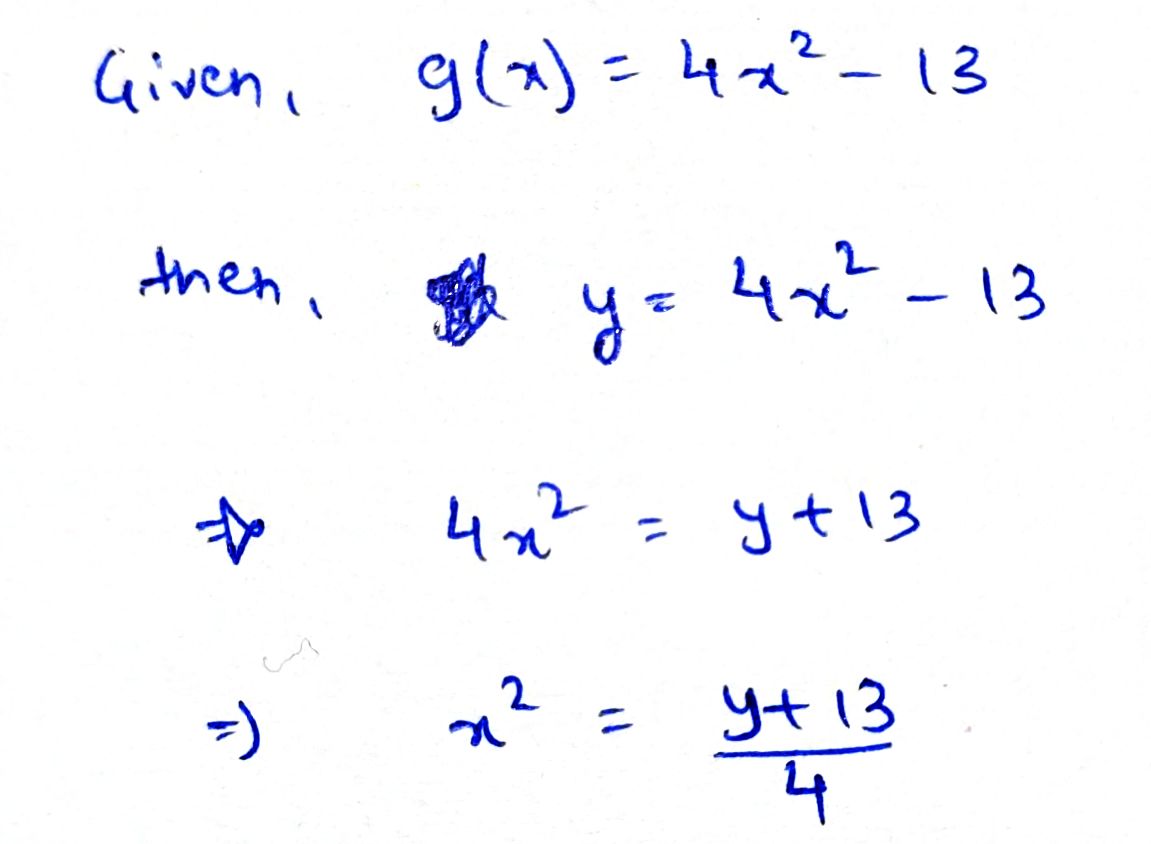 Given, g(x) = 4x² - 13
then, y = 4x² - 13
⇒ 4x² = y + 13
⇒ x² = (y + 13)/4